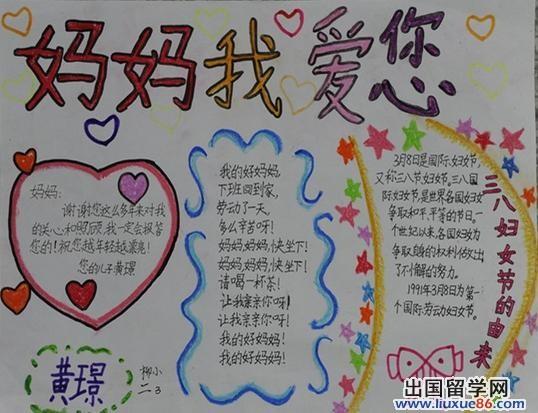 妈妈我爱您
妈妈:
谢谢您这么多年来对我
的关心和照顾,我一定会报答
您的!祝您越年轻越漂亮!
您的儿子黄璟
黄璟
柳小
二3
我的好妈妈,
下班回到家,
劳动了一天,
多么辛苦呀!
妈妈,妈妈,快坐下!
妈妈,妈妈,快坐下!
请喝一杯茶!
让我亲亲你呀!
让我亲亲你呀!
我的好妈妈!
我的好妈妈!
3月8日是国际妇女节,
又称三八节妇女节,三八国
际妇女节,是世界各国妇女
争取和平,平等的节日,一
个世纪以来,各国妇女为
争取自身的权利做出
了不懈的努力。
1991年3月8日为第一
个国际劳动妇女节。
三八妇女节的由来
出国留学网
www.liuxue86.com